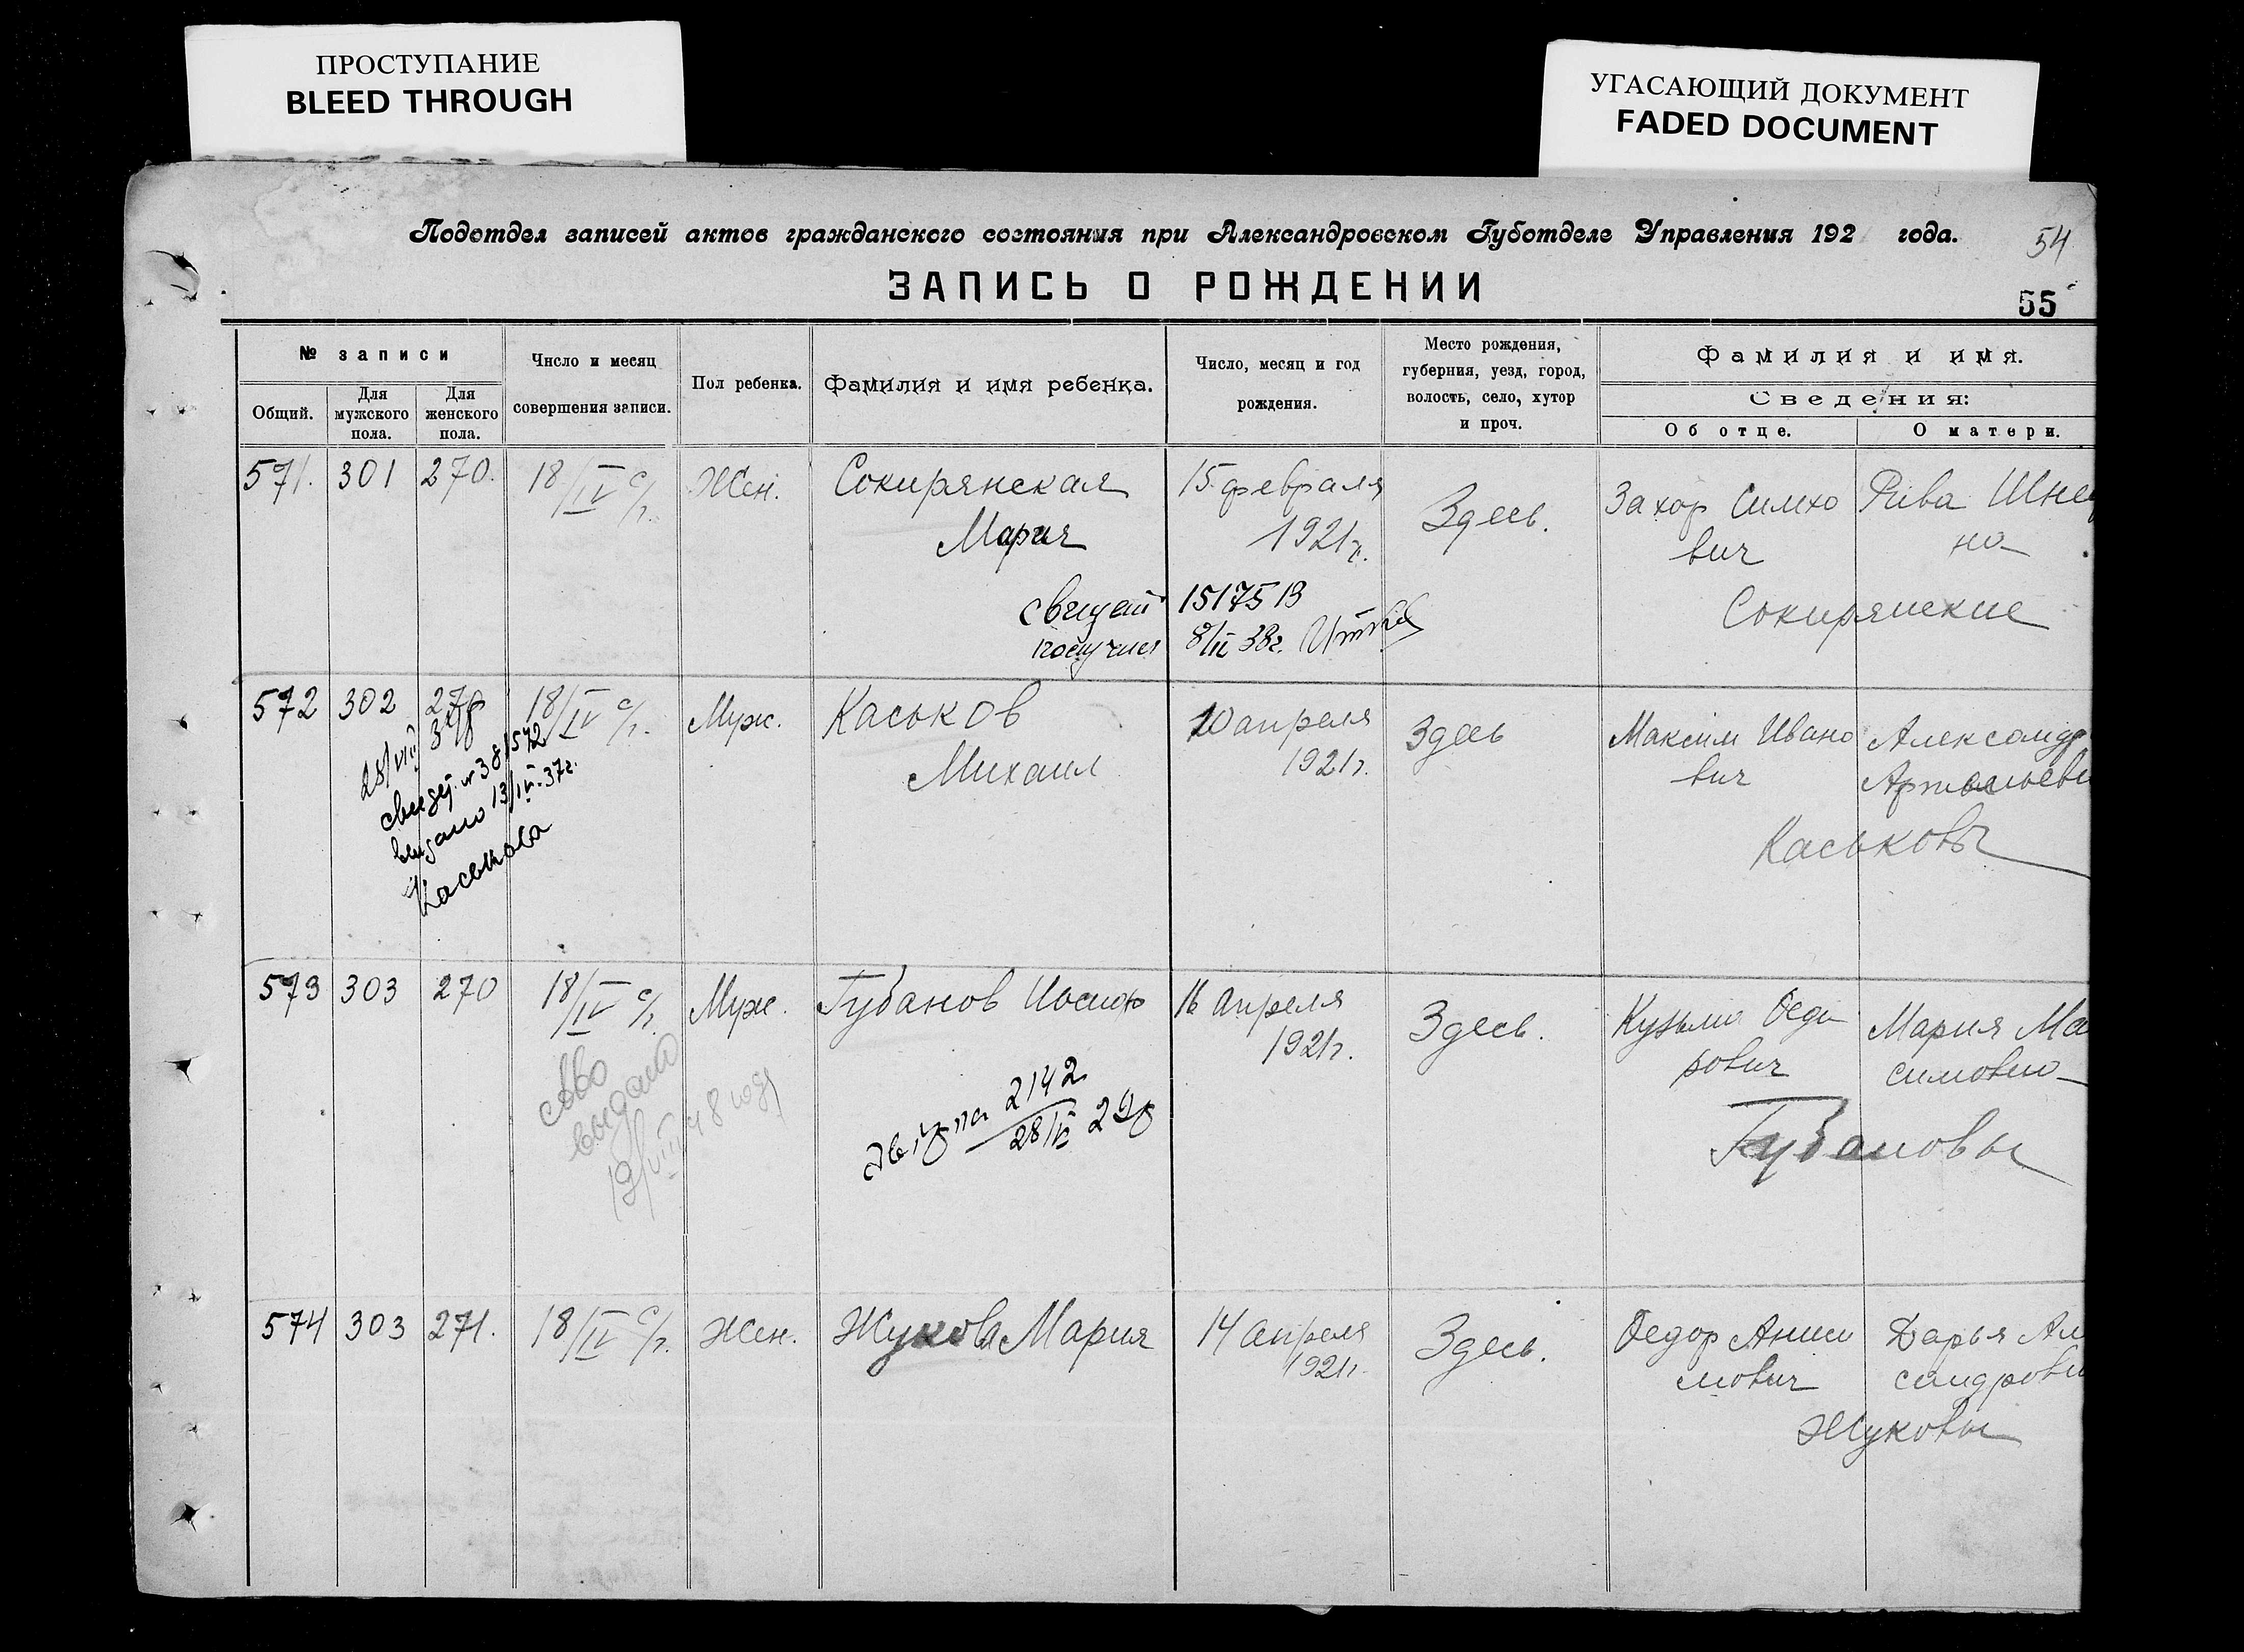 ПРОСТУПАНИЕ
BLEED THROUGH
УГАСАЮЩИЙ ДОКУМЕНТ
FADED DOCUMENT
Подотдел записей актов гражданского состояния при Александровском Губотделе Управления 192 года.
54
ЗАПИСЬ О РОЖДЕНИИ
55
№ записи
Общий.
Для мужского пола.
Для женского пола.
Число и месяц совершения записи.
Пол ребенка.
Фамилия и имя ребенка.
Число, месяц и год рождения.
Место рождения, губерния, уезд, город, волость, село, хутор и проч.
Фамилия и имя.
Сведения:
Об отце.
О матери.
571. 301 270. 18/IV с/г. Жен. Сокирянская 15 февраля Здесь. Захар Симхо Рива Шне
Мария 1921г. вич на
Сокирянские
получил 8/II 38г.
572 302 270 18/IV с/г. Муж. Каськов 10 апреля Здесь Максим Ивано Александр
Михаил 1921г. вич
Каськовы
28/VIII
свидет. № 381572
выдано 13/IV-37г.
Каськова
573 303 270 18/IV с/г. Муж. Губанов Иосиф 16 апреля Здесь. Кузьма Федо Мария Ма
1921г. рович симовна
Губановы
выдано
19/VIII 48 году
2142
28/VI 29
574 303 271. 18/IV с/г. Жен. Жукова Мария 14 апреля Здесь. Федор Аниси Дарья Ал
1921г. мович сандровн
Жуковы